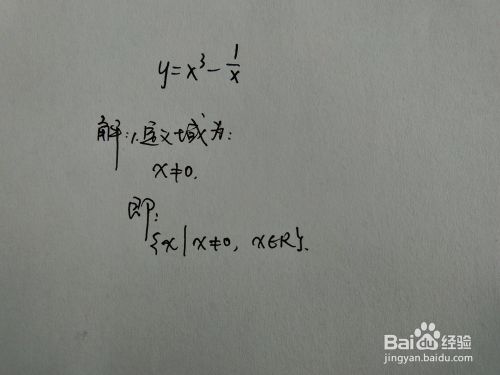 y=x³-1/x
解:1.定义域为:
x≠0.
即:
{x|x≠0, x∈R}.
Baidu经验
jingyan.baidu.com